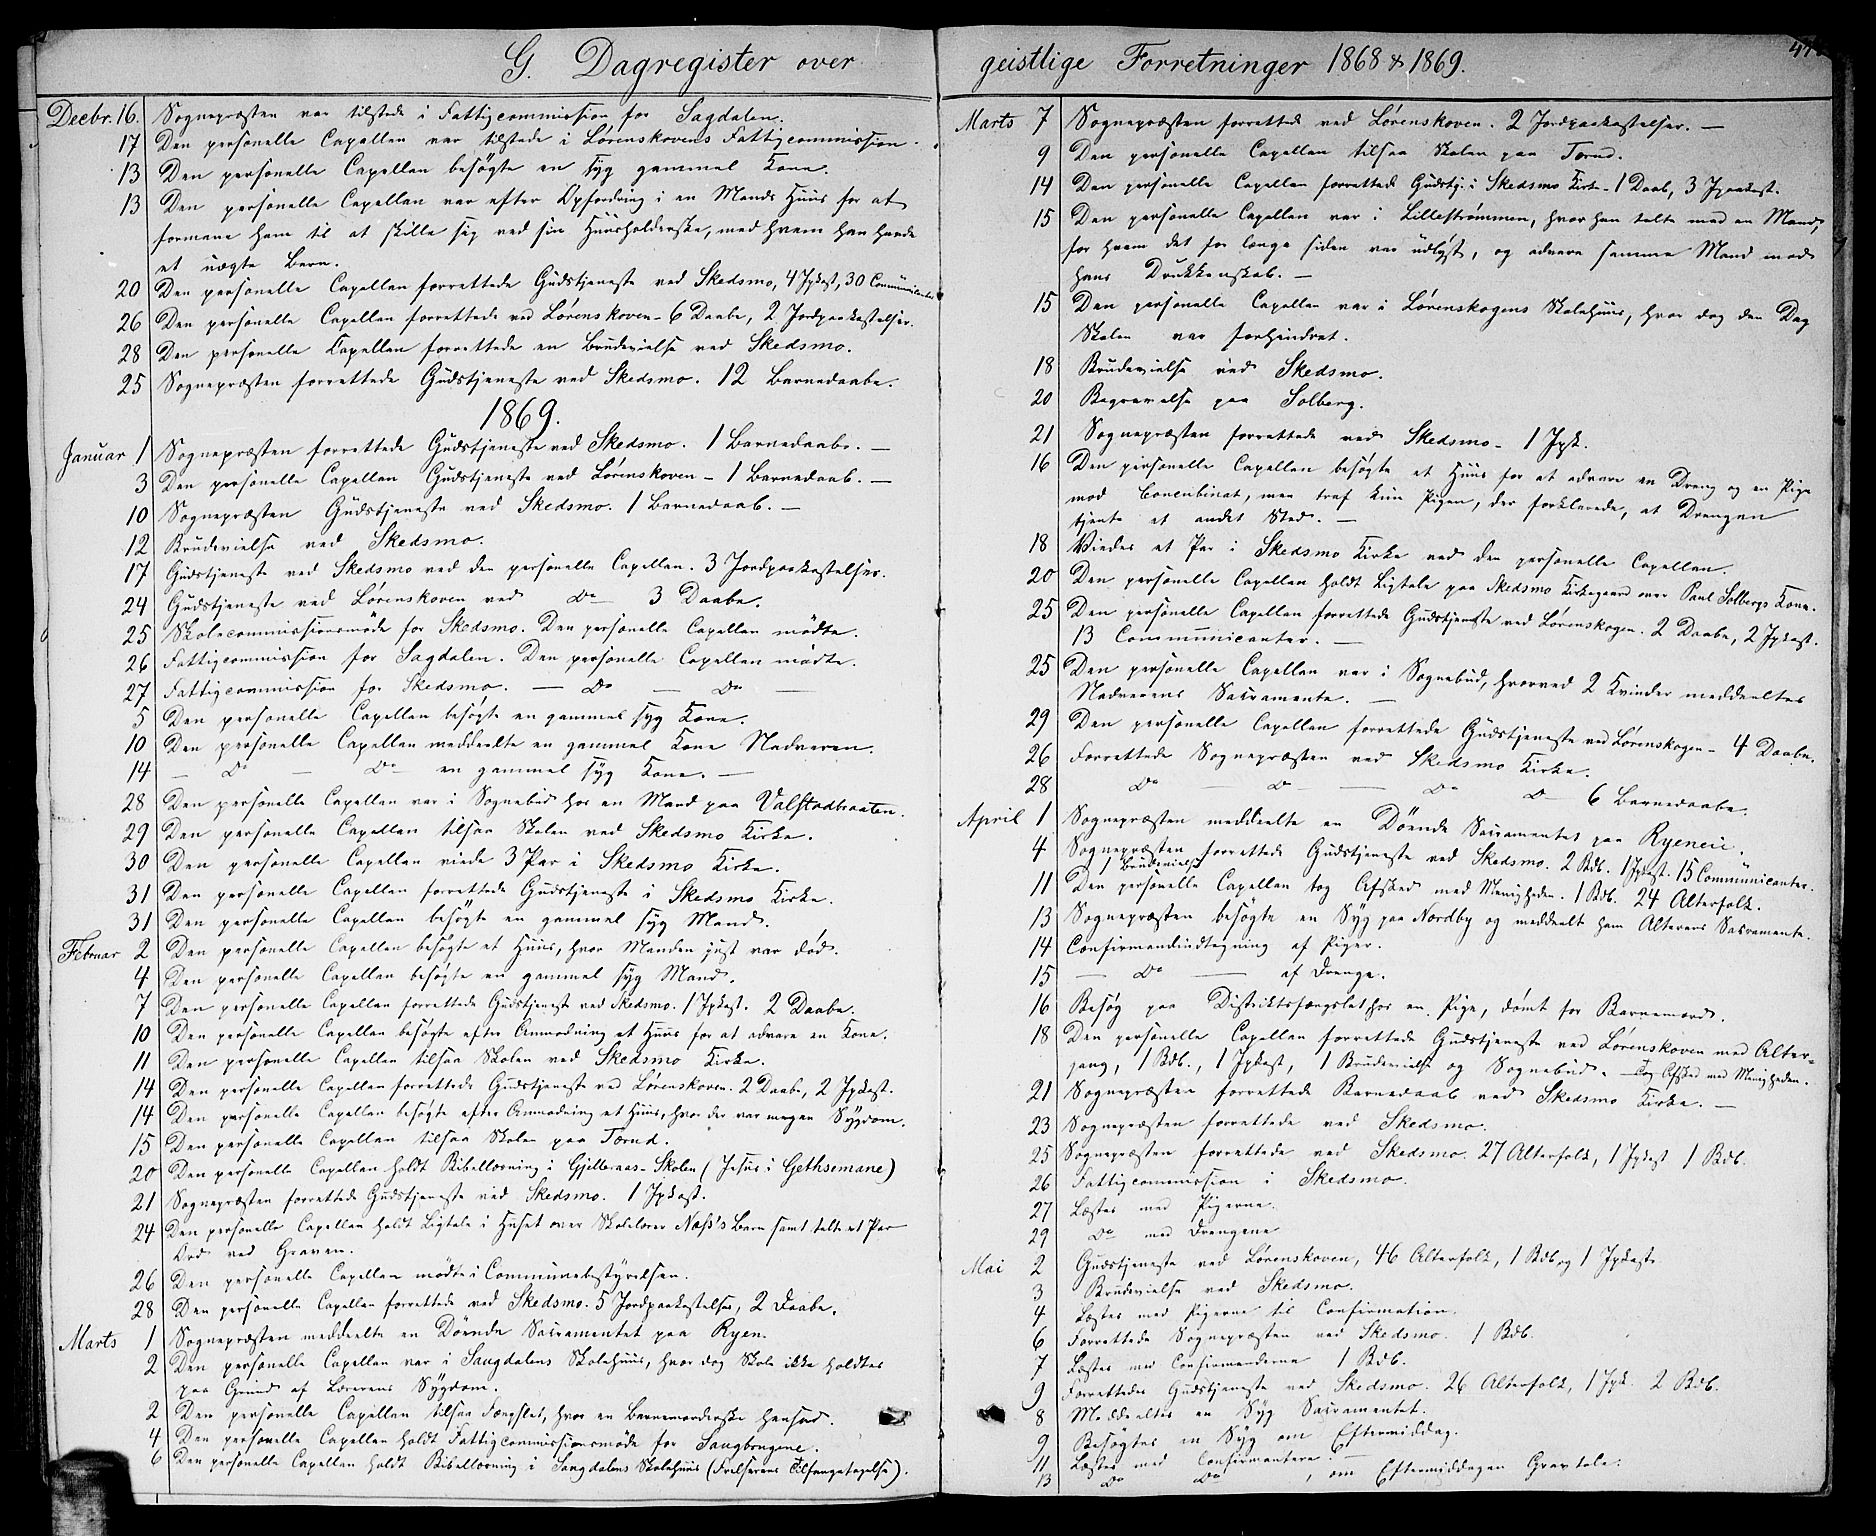 G. Dagregister over
Decbr. 16. Sognepræsten var tilstede i Fattigcommission for Sagdalen.
17 Den personelle Capellan var tilstede i Lørenskovens Fattigcommission.
13 Den personelle Capellan besøgte en syg gammel Kone.
13 Den personelle Capellan var efter Opfordring i en Mands Huus for at
formane ham til at skille sig ved sin Huusholderske, med hvem han havde
et uægte Barn.
20 Den personelle Capellan forrettede Gudstjeneste ved Skedsmo, 4 Jpkast, 30 Communicanter
26 Den personelle Capellan forrettede ved Lørenskoven - 6 Daabe, 2 Jordpaakastelser.
28 Den personelle Capellan forrettede en Brudevielse ved Skedsmo.
25 Sognepræsten forrettede Gudstjeneste ved Skedsmo. 12 Barnedaabe.
1869.
Januar 1 Sognepræsten forrettede Gudstjeneste ved Skedsmo. 1 Barnedaabe. —
3 Den personelle Capellan Gudstjeneste ved Lørenskoven - 1 Barnedaab. —
10 Sognepræsten Gudstjeneste ved Skedsmo. 1 Barnedaab. —
12 Brudevielse ved Skedsmo.
17 Gudstjeneste ved Skedsmo ved den personelle Capellan. 3 Jordpaakastelser.
24 Gudstjeneste ved Lørenskoven ved Do 3 Daabe.
25 Skolecommissionsmøde for Skedsmo. Den personelle Capellan mødte.
26 Fattigcommission for Sagdalen. Den personelle Capellan mødte.
27 Fattigcommission for Skedsmo. — Do — Do —
5 Den personelle Capellan besøgte en gammel syg Kone.
10 Den personelle Capellan meddeelte en gammel Kone Nadveren.
14 — Do — Do en gammel syg Kone. —
28 Den personelle Capellan var i Sognebud hos en Mand paa Valstadbraaten.
29 Den personelle Capellan tilsaa Skolen ved Skedsmo Kirke.
30 Den personelle Capellan viede 3 Par i Skedsmo Kirke.
31 Den personelle Capellan forrettede Gudstjeneste i Skedsmo Kirke.
31 Den personelle Capellan besøgte en gammel syg Mand.
Februar 2 Den personelle Capellan besøgte et Huus, hvor Manden just var død.
4 Den personelle Capellan besøgte en gammel syg Mand.
7 Den personelle Capellan forrettede Gudstjenest ved Skedsmo. 1 Jpkast. 2 Daabe.
10 Den personelle Capellan besøgte efter Anmodning et Huus for at advare en Kone.
11 Den personelle Capellan tilsaa Skolen ved Skedsmo Kirke.
14 Den personelle Capellan forrettede Gudstjeneste ved Lørenskoven. 2 Daabe, 2 Jpkast.
14 Den personelle Capellan besøgte efter Anmodning et Huus, hvor der var megen Sygdom.
15 Den personelle Capellan tilsaa Skolen paa Torud.
20 Den personelle Capellan holdt Bibellæsning i Gjelleraas-Skolen (Jesus i Gethsemane)
21 Sognepræsten forrettede Gudstjeneste ved Skedsmo. 1 Jpkast.
24 Den personelle Capellan holdt Ligtale i Huset over Skolelærer Næss's Barn samt talte et Par
Ord ved Graven.
26 Den personelle Capellan mødte i Communebestyrelsen.
28 Den personelle Capellan forrettede ved Skedsmo. 5 Jordpaakastelse, 2 Daabe.
Marts 1 Sognepræsten meddeelte en Døende Sacramentet paa Ryen.
2 Den personelle Capellan var i Saugdalens Skolehuus, hvor dog Skole ikke holdtes
paa Grund af Lærerens Sygdom.
2 Den personelle Capellan tilsaa Fængslet, hvor en Barnemorderske hensad.
4 Den personelle Capellan holdt Fattigcommissionsmøde for Saugbrugene.
6 Den personelle Capellan holdt Bibellæsning i Saugdalens Skolehuus (Frelserens Tilfangetagelse).
geistlige Forretninger 1868 & 1869.
Marts 7 Sognepræsten forrettede ved Lørenskoven. 2 Jordpaakastelser. —
9 Den personelle Capellan tilsaa Skolen paa Torud.
14 Den personelle Capellan forrettede Gudstj. i Skedsmo Kirke - 1 Daab, 3 Jpaakast.
15 Den personelle Capellan var i Lillestrømmen, hvor han talte med en Mand,
for hvem det for længe siden var udlyst, og advare samme Mand mod
hans Drukkenskab. —
15 Den personelle Capellan var i Lørenskogens Skolehuus, hvor dog den Dag
Skolen var forhindret.
18 Brudevielse ved Skedsmo.
20 Begravelse paa Solberg.
21 Sognepræsten forrettede ved Skedsmo - 1 Jpk.
16 Den personelle Capellan besøgte et Huus for at advare en Dreng og en Pige
mod Concubinat, men traf kun Pigen, der forklarede, at Drengen
tjente et andet Sted. —
18 Viedes et Par i Skedsmo Kirke ved den personelle Capellan.
20 Den personelle Capellan holdt Ligtale paa Skedsmo Kirkegaard over Paul Solbergs Kone.
25 Den personelle Capellan forrettede Gudstjeneste ved Lørenskogen. 2 Daabe, 2 Jpkast.
13 Communicanter. —
25 Den personelle Capellan var i Sognebud, hvorved 2 Kvinder meddeeltes
Nadverens Sacramente. —
29 Den personelle Capellan forrettede Gudstjeneste ved Lørenskogen - 4 Daabe.
26 Forrettede Sognepræsten ved Skedsmo Kirke.
28 Do — Do — Do Do 6 Barnedaabe.
April 1 Sognepræsten meddeelte en Døende Sacramentet paa Ryeneie.
4 Sognepræsten forrettede Gudstjeneste ved Skedsmo. 2 Bdb. 1 Jpkast. 15 Communicanter.
1 Brudevielse
11 Den personelle Capellan tog Afsked med Menigheden. 1 Bdb. 24 Alterfolk.
13 Sognepræsten besøgte en Syg paa Nordby og meddeelt ham Alterens Sacramente.
14 Confirmandindtegning af Piger.
15 — Do — af Drenge.
16 Besøg paa Distriktsfængslet hos en Pige, dømt for Barnemord.
18 Den personelle Capellan forrettede Gudstjeneste ved Lørenskoven med Alter-
gang, 1 Bdb., 1 Jpkast, 1 Brudevielse og Sognebud. — Tog Afsked med Menigheden.
21 Sognepræsten forrettede Barnedaab ved Skedsmo Kirke. —
23 Sognepræsten forrettede ved Skedsmo.
25 Sognepræsten forrettede ved Skedsmo. 27 Alterfolk, 1 Jpkast 1 Bdb.
26 Fattigcommission i Skedsmo.
27 Læstes med Pigerne.
29 Do med Drengene
Mai 2 Gudstjeneste ved Lørenskoven, 46 Alterfolk, 1 Bdb og 1 Jpkast
3 Brudevielse ved Skedsmo.
4 Læstes med Pigerne til Confirmation.
6 Forrettede Sognepræsten ved Skedsmo. 1 Bdb.
7 Læstes med Confirmanderne 1 Bdb.
9 Forrettedes Gudstjeneste ved Skedsmo. 26 Alterfolk, 1 Jpk. 2 Bdb.
8 Meddeeltes en Syg Sacramentet.
9 Besøgtes en Syg om Eftermiddag.
11 Læstes med Confirmantere. —
13 Do Do, om Eftermiddagen Gravtale.